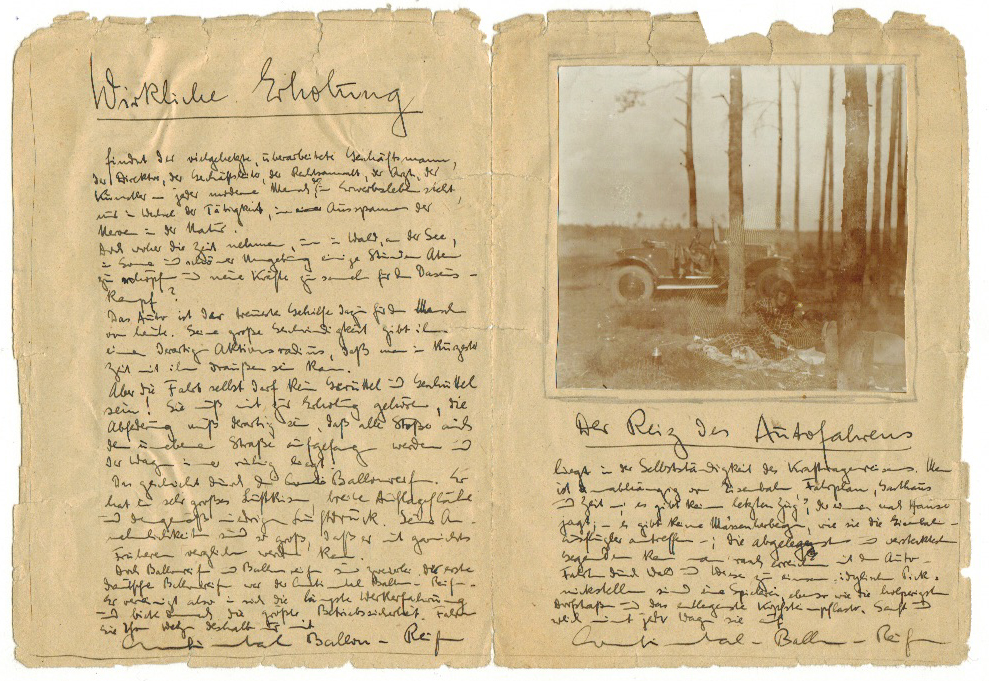 Wirkliche Erholung
findet der vielgehetzte, überarbeitete Geschäftsmann,
der Direktor, der Rechtsanwalt, der Arzt, der
Künstler — jeder moderne Mensch im Erwerbsleben steht,
nur in Wechsel der Tätigkeit, im Ausspannen der
Nerven in der Natur.
Doch woher die Zeit nehmen, um in Wald, an der See,
in Sonne und schöner Umgebung einige Stunden Atem
zu schöpfen und neue Kräfte zu sammeln für den Daseins-
kampf?
Das Auto ist der treueste Gehilfe dazu für den Menschen
von heute. Seine große Geschwindigkeit gibt ihm
einen derartigen Aktionsradius, daß man in kürzester
Zeit mit ihm draußen sein kann.
Aber die Fahrt selbst darf kein Gerüttel und Geschüttel
sein! Sie muß mit zur Erholung gehören, die
Abfederung muß derartig sein, daß alle Stöße auch
der unebenen Straße aufgefangen werden und
der Wagen immer ruhig liegt.
Das geschieht durch den Conti Ballonreifen. Er
hat ein sehr großes Luftkissen, breite Auflagefläche
und demgemäß niedrigen Luftdruck. Seine An-
nehmlichkeiten sind so groß, daß er mit garnichts
Früherem verglichen werden kann.
Doch Ballonreifen und Ballonreifen sind zweierlei. Der erste
deutsche Ballonreifen war der Continental Ballon-Reifen.
Er vereinigt also in sich die längste Werkerfahrung
und bietet dadurch die größte Betriebssicherheit. Fahren
Sie Ihren Wagen deshalb nur mit
Continental Ballon-Reifen
Der Reiz des Autofahrens
liegt in der Selbstständigkeit des Kraftwagenreisens. Man
ist unabhängig von Eisenbahn, Fahrplan, Gasthaus
und Zeit; es gibt keinen "letzten Zug", der einen nach Hause
jagt, — es gibt keine Massenherbergen, wie sie die Eisenbahn-
ausflügler antreffen; die abgelegensten und verstecktesten
Gegenden kann man rasch erreichen mit dem Auto.
Fahrten durch Wald und Wiese zu einsamen, idyllischen Pick-
nickstellen sind eine Spielerei, ebenso wie die holperigsten
Dorfstraßen und das entlegenste Kopfsteinpflaster. Sanft und
weich nimmt jeder Wagen sie auf
Continental-Ballon-Reifen